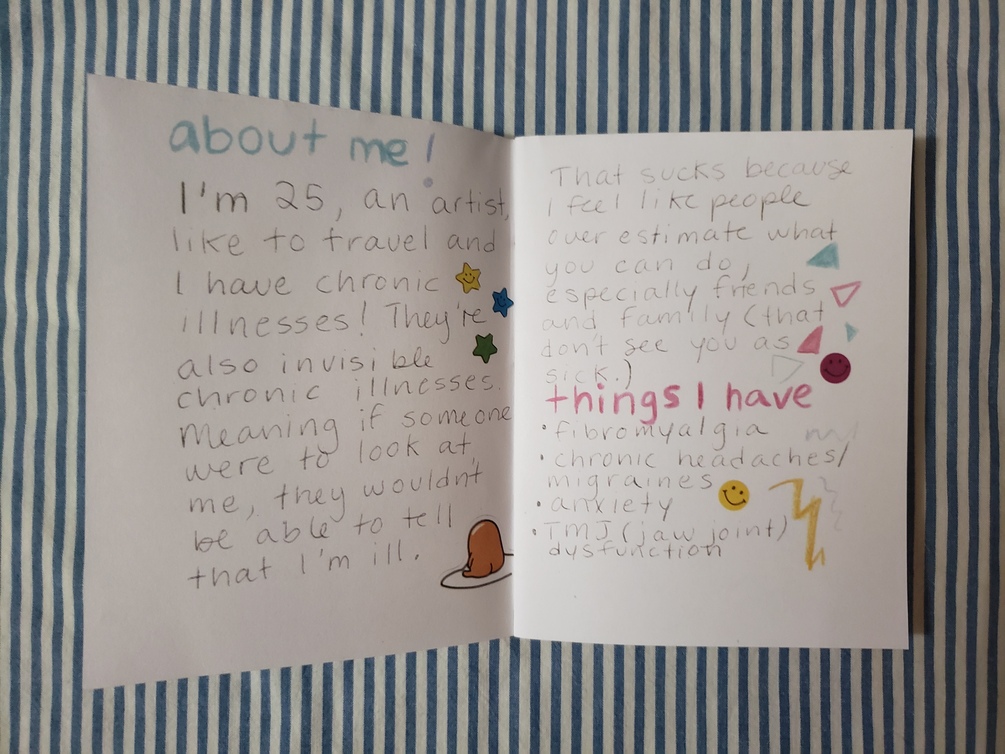 about me!
I'm 25, an artist,
like to travel and
I have chronic
illnesses! They're
also invisible
chronic illnesses.
Meaning if someone
were to look at
me, they wouldn't
be able to tell
that I'm ill.
That sucks because
I feel like people
over estimate what
you can do,
especially friends
and family (that
don't see you as
sick.)
things I have
• fibromyalgia
• chronic headaches/
migraines
• anxiety
• TMJ (jaw joint)
dysfunction